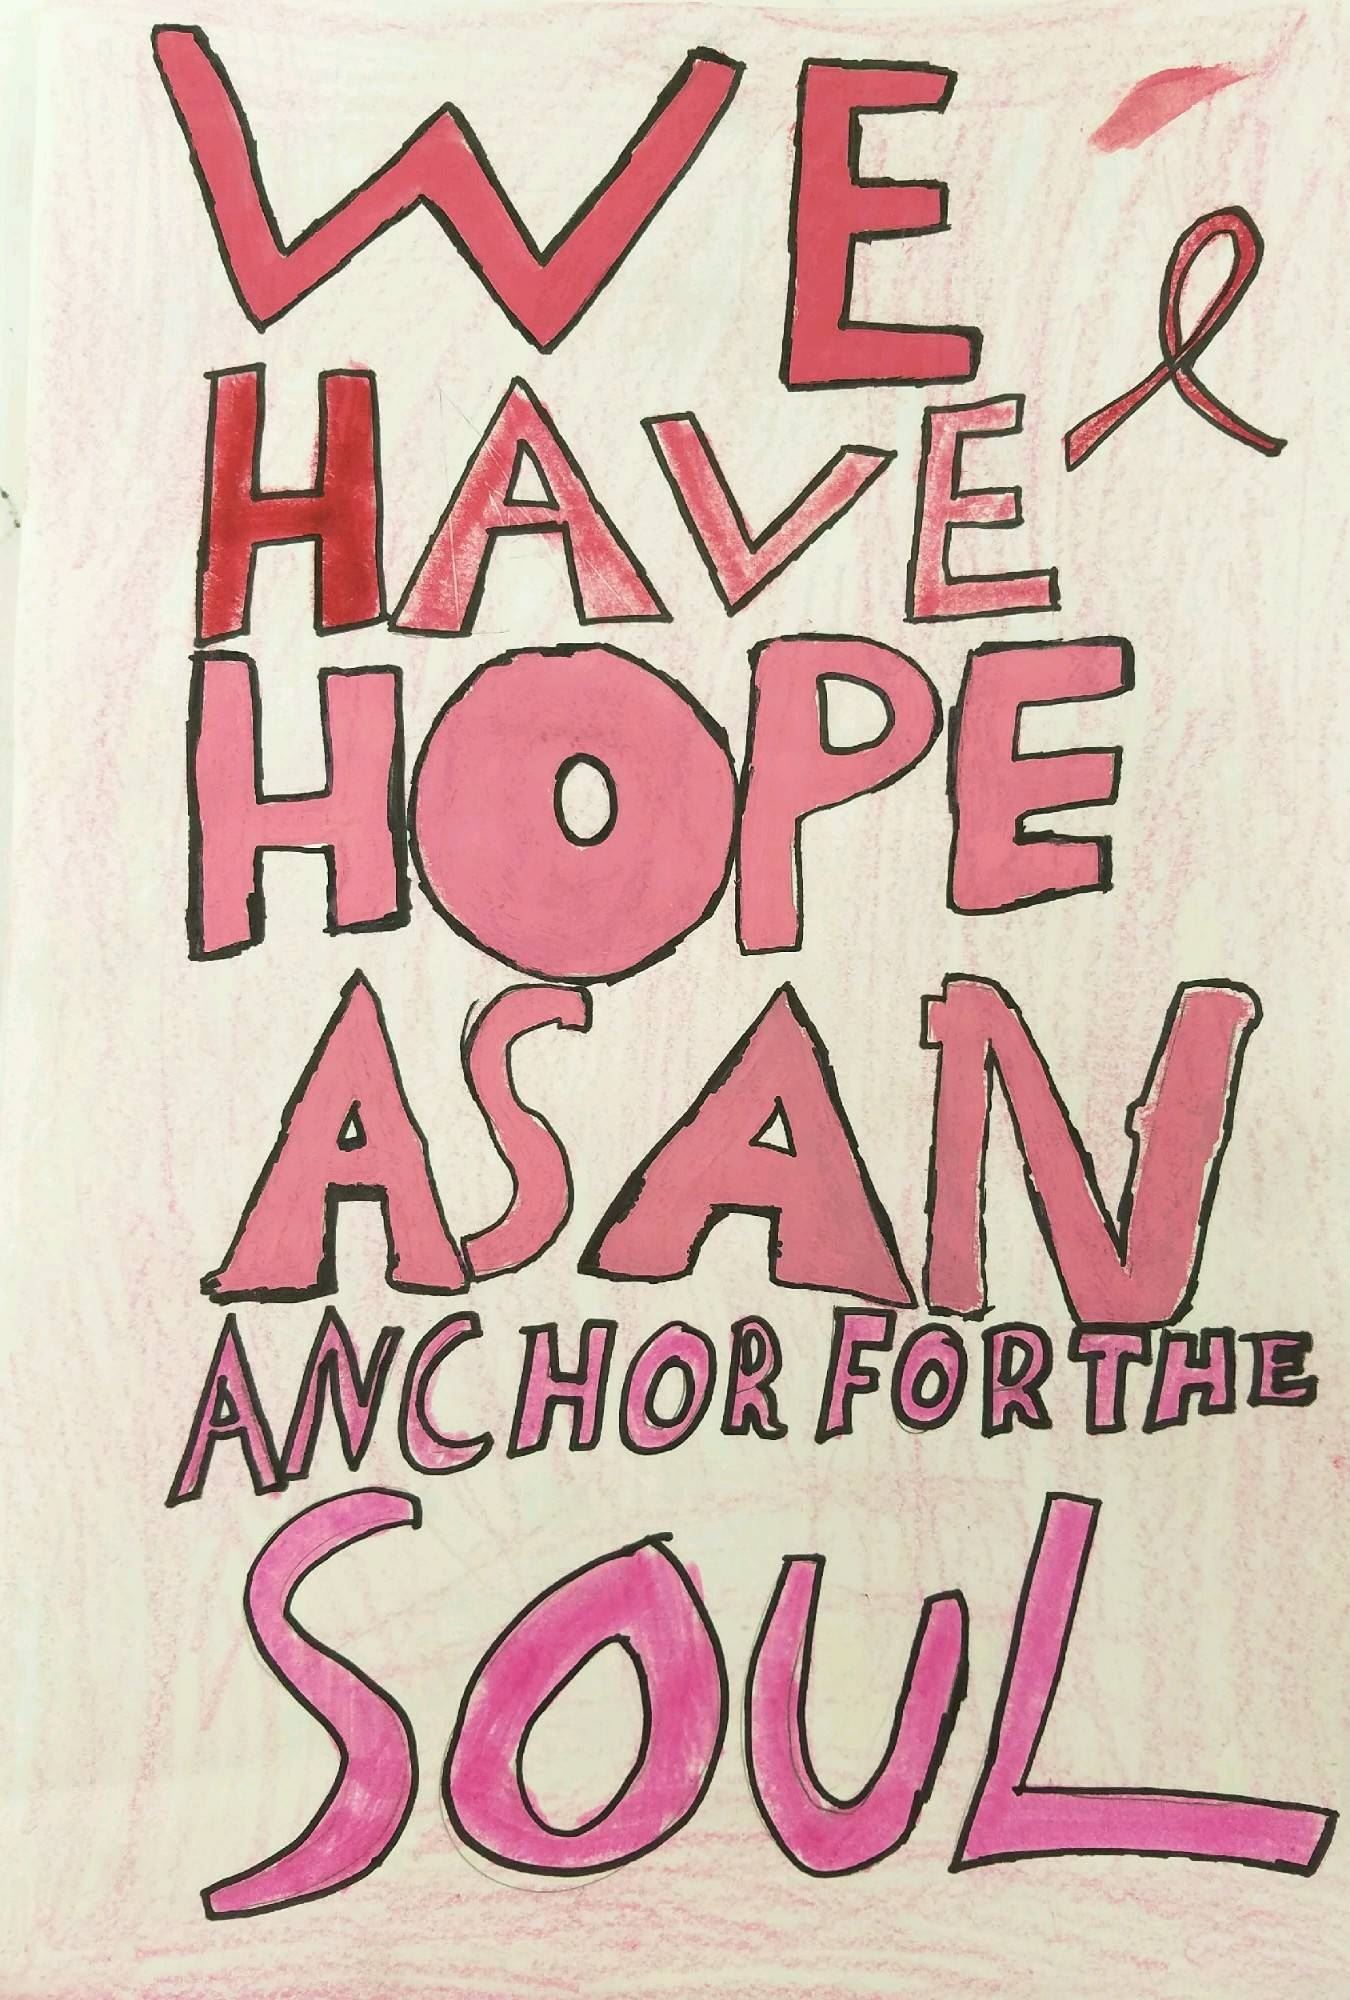 WE
HAVE
HOPE
AS AN
ANCHOR FOR THE
SOUL